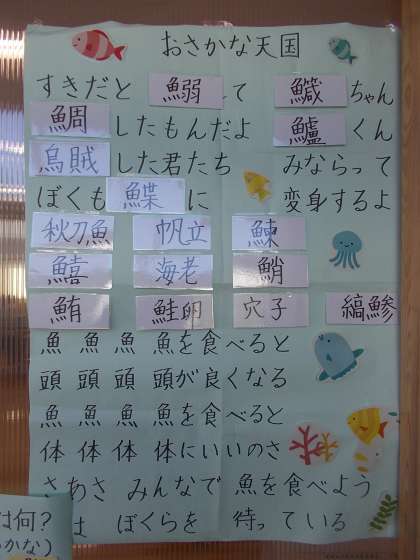 おさかな天国
すきだと 鰯 て 鱵 ちゃん
鯛 したもんだよ 鱸 くん
烏賊 した君たち みならって
ぼくも 鰈 に 変身するよ
秋刀魚 帆立 鰊
鱚 海老 鮹
鮪 鮭卵 穴子 縞鯵
魚 魚 魚 魚を食べると
頭 頭 頭 頭が良くなる
魚 魚 魚 魚を食べると
体 体 体 体にいいのさ
さあさ みんなで 魚を食べよう
は ぼくらを 待っている
は何?
かな)